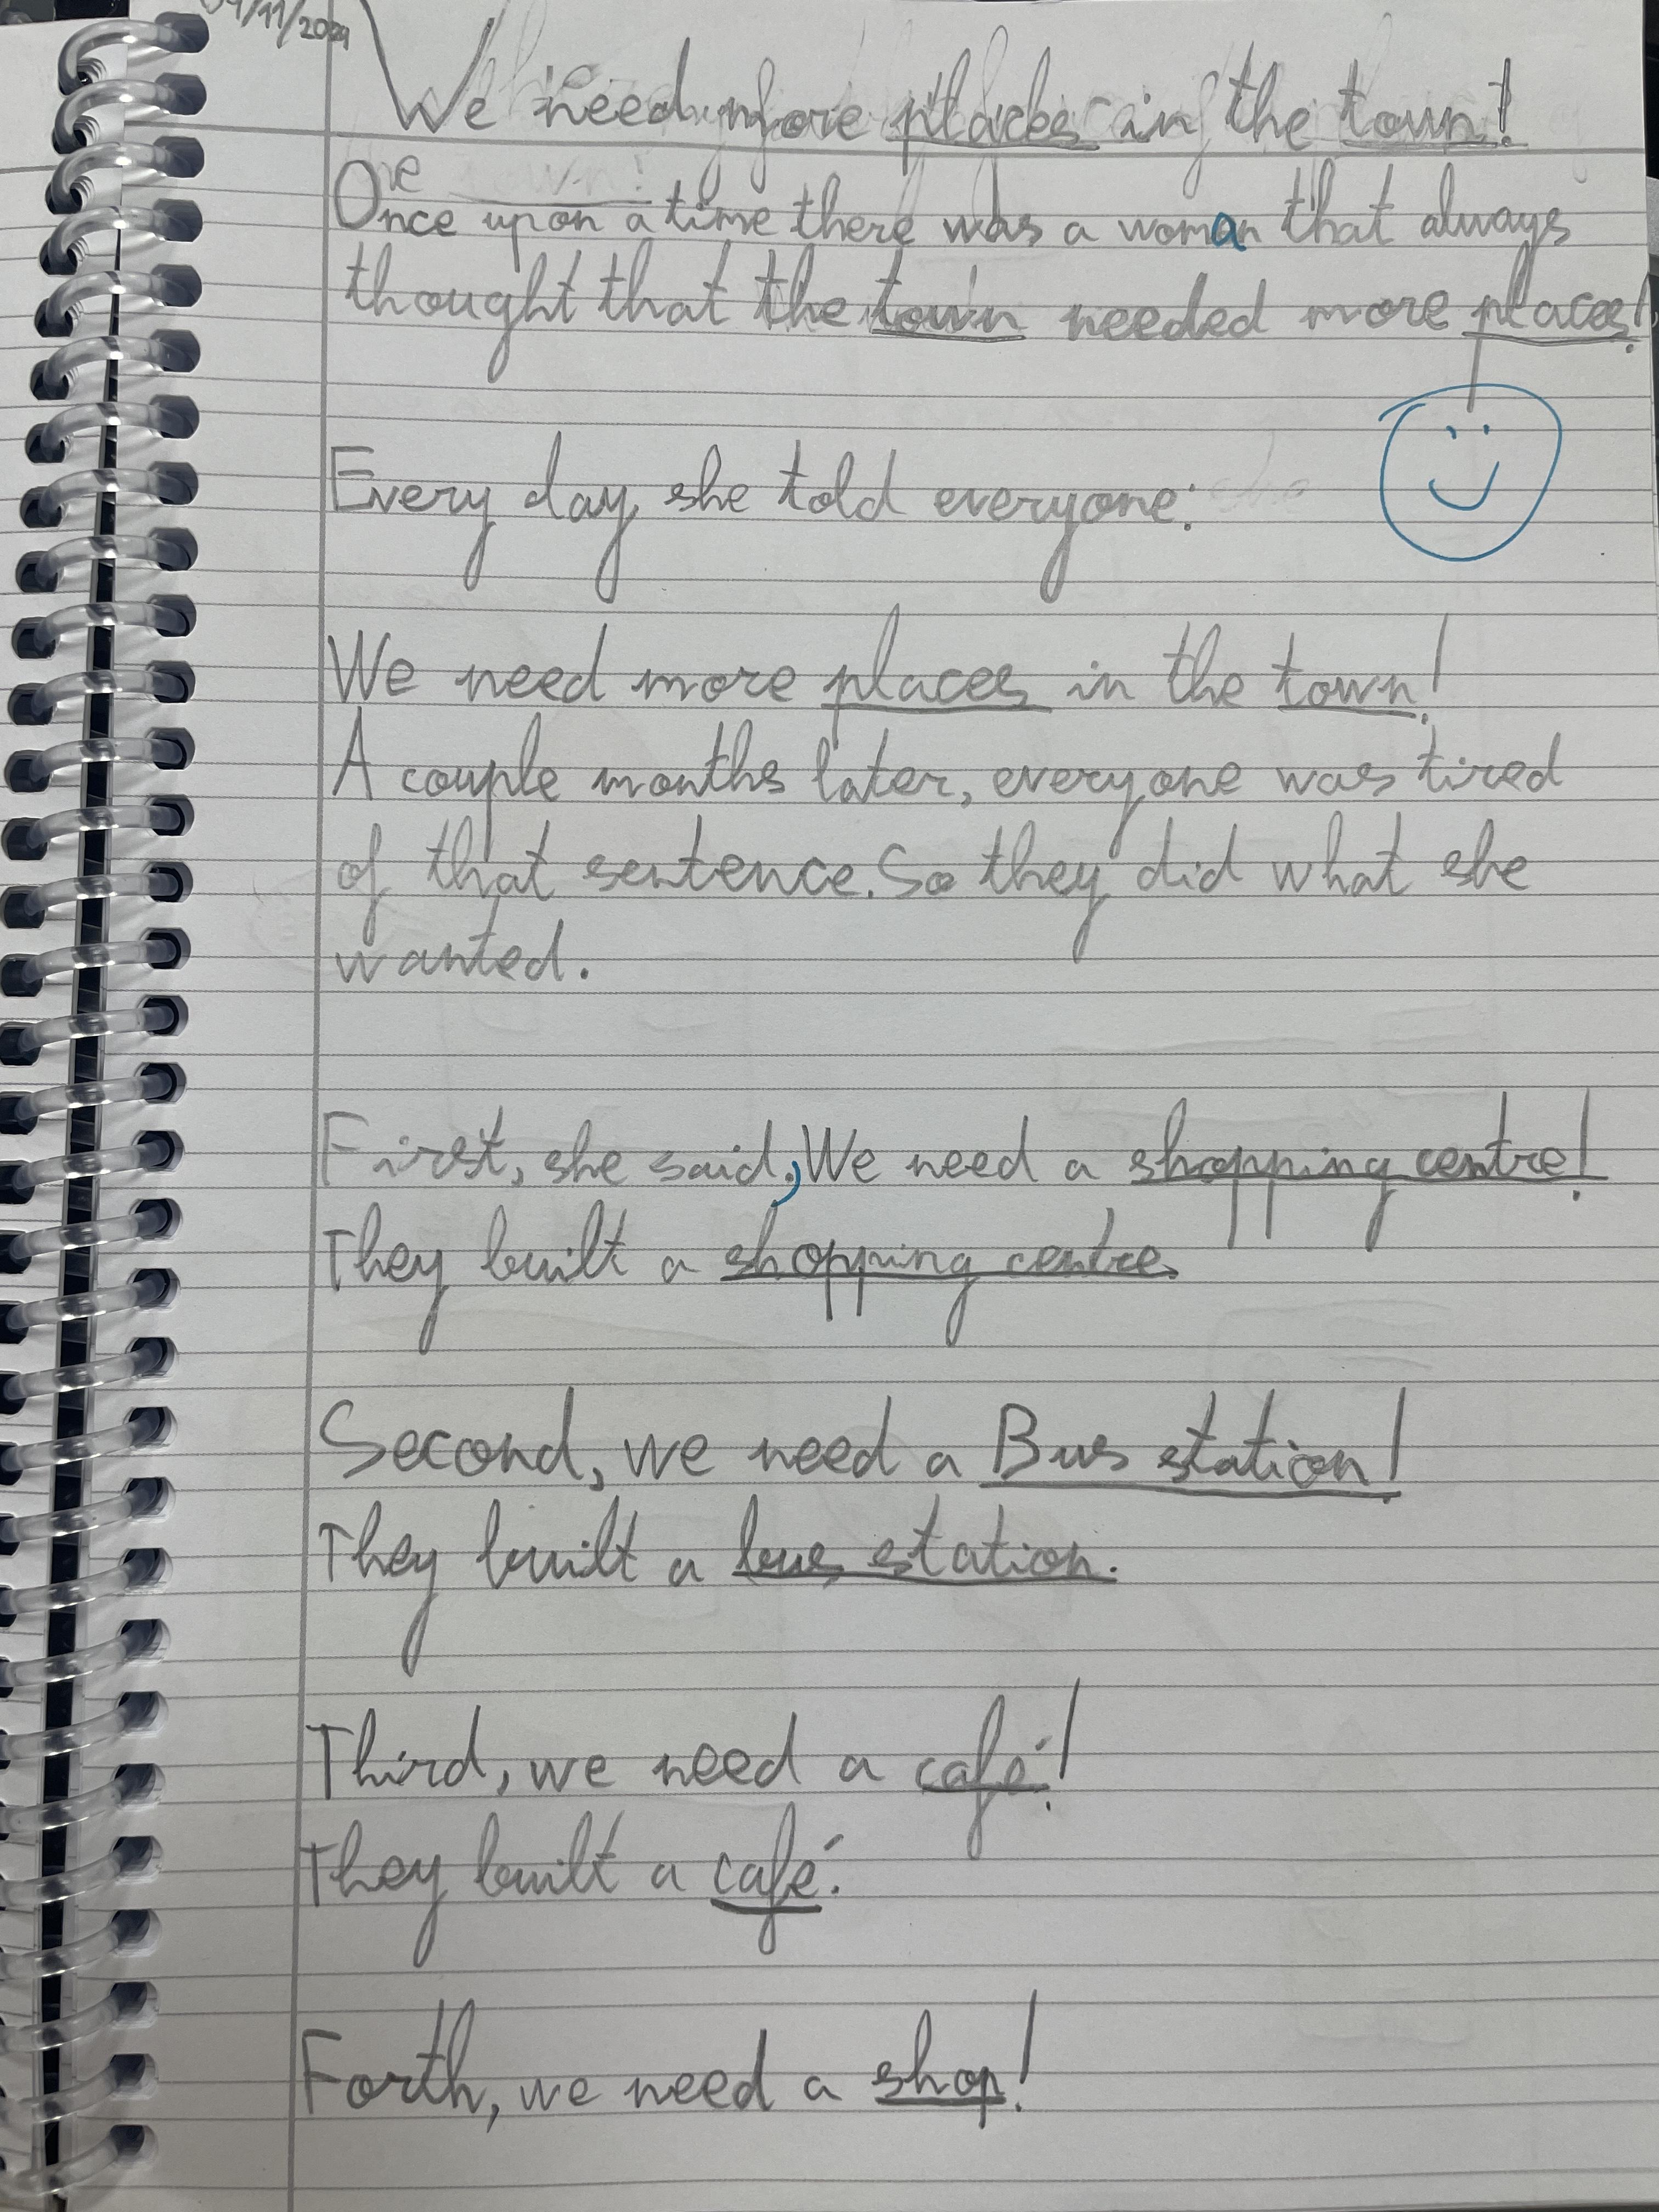 /11/2024
We need more places in the town!
Once upon a time there was a woman that always
thought that the town needed more places!
Every day, she told everyone:
We need more places in the town!
A couple months later, everyone was tired
of that sentence. So they did what she
wanted.
First, she said, We need a shopping centre!
They built a shopping centre.
Second, we need a Bus station!
They built a bus station.
Third, we need a café!
They built a café.
Forth, we need a shop!